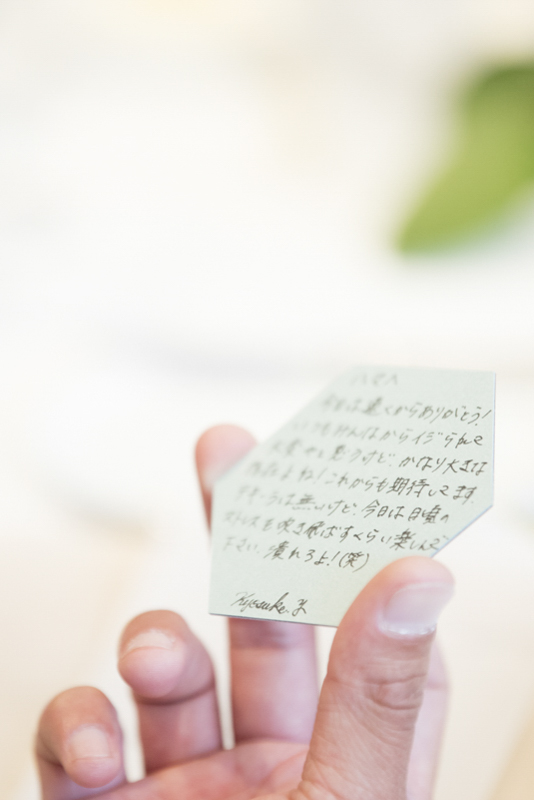 今日は遠くからありがとう!
いつもみんなからイジられて
大変やと思うけど、かなり大きな
存在よね!これからも期待してます。
は無いけど、今日は日頃の
ストレスを吹き飛ばすくらい楽しんで
下さい。潰れろよ!(笑)
Kyosuke. Y